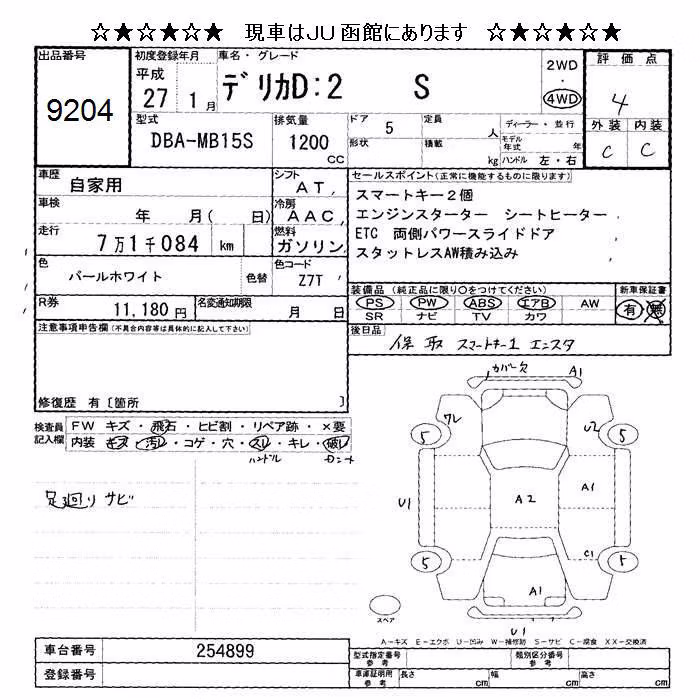 ☆★☆★☆★ 現車はJU函館にあります ☆★☆★☆★
出品番号 9204
初度登録年月 平成 27 1月
車名・グレード デリカD:2 S
2WD ・ 4WD
評価点 4
外装 内装
C C
型式 DBA-MB15S
排気量 1200 CC
ドア 5 定員 人
形状 積載 kg
ディーラー・並行
モデル年式 年
ハンドル 左・右
車歴 自家用
シフト AT
車検 年 月( 日)
冷房 AAC
走行 7万1千084 km
燃料 ガソリン
色 パールホワイト 色替
色コード Z7T
R券 11,180円
名変通知期限 月 日
セールスポイント(正常に機能するものに限ります)
スマートキー2個
エンジンスターター シートヒーター
ETC 両側パワースライドドア
スタットレスAW積み込み
装備品 (純正品に限り○をつけてください)
PS PW ABS エアB AW
SR ナビ TV カワ
新車保証書
有・無
後日品
保 取 スマートキー1 エンスタ
注意事項申告欄(不具合内容等は具体的に記入して下さい)
修復歴 有〔箇所 〕
検査員記入欄
FW キズ・飛石・ヒビ割・リペア跡・×要
内装 キズ・汚レ・コゲ・穴・スレ・キレ・破レ
ハンドル
足廻りサビ
カバー欠 A1
ワレ U2
5 5
U1 A2 A1
C1
5 5
A1
スペア
U1
A-キズ E-エクボ U-凹み W-補修跡 S-サビ C-腐食 XX-交換済
車台番号 254899
登録番号
型式指定番号 参考
類別区分番号 参考
車庫証明用 参考 長さ cm 幅 cm 高さ cm